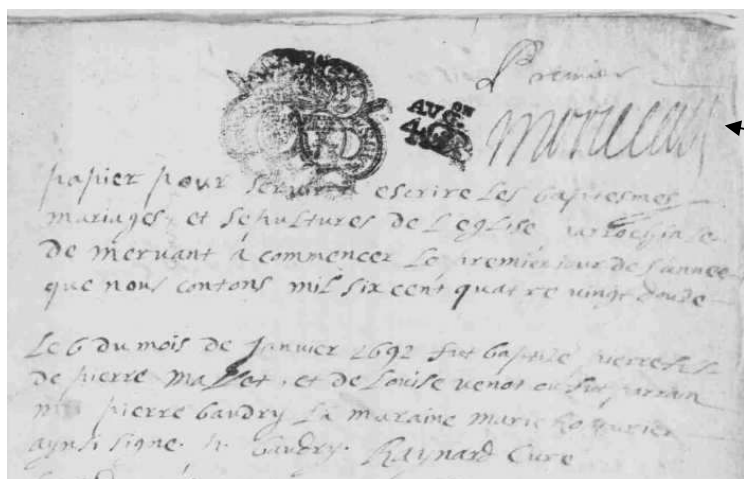 Premier
AUG.ON
papier pour servir a escrire les baptesmes
mariages et sepultures de L'eglise parrochialle
de mervant à commencer le premier jour de l'annee
que nous contons mil six cent quatre vingt douze
Le 6 du mois de Janvier 1692 fut baptisé pierre fils
de pierre Mallet, et de Louise venot ou fut parrain
pierre baudry La maraine marie
aynsi signe baudry Raynard Curé